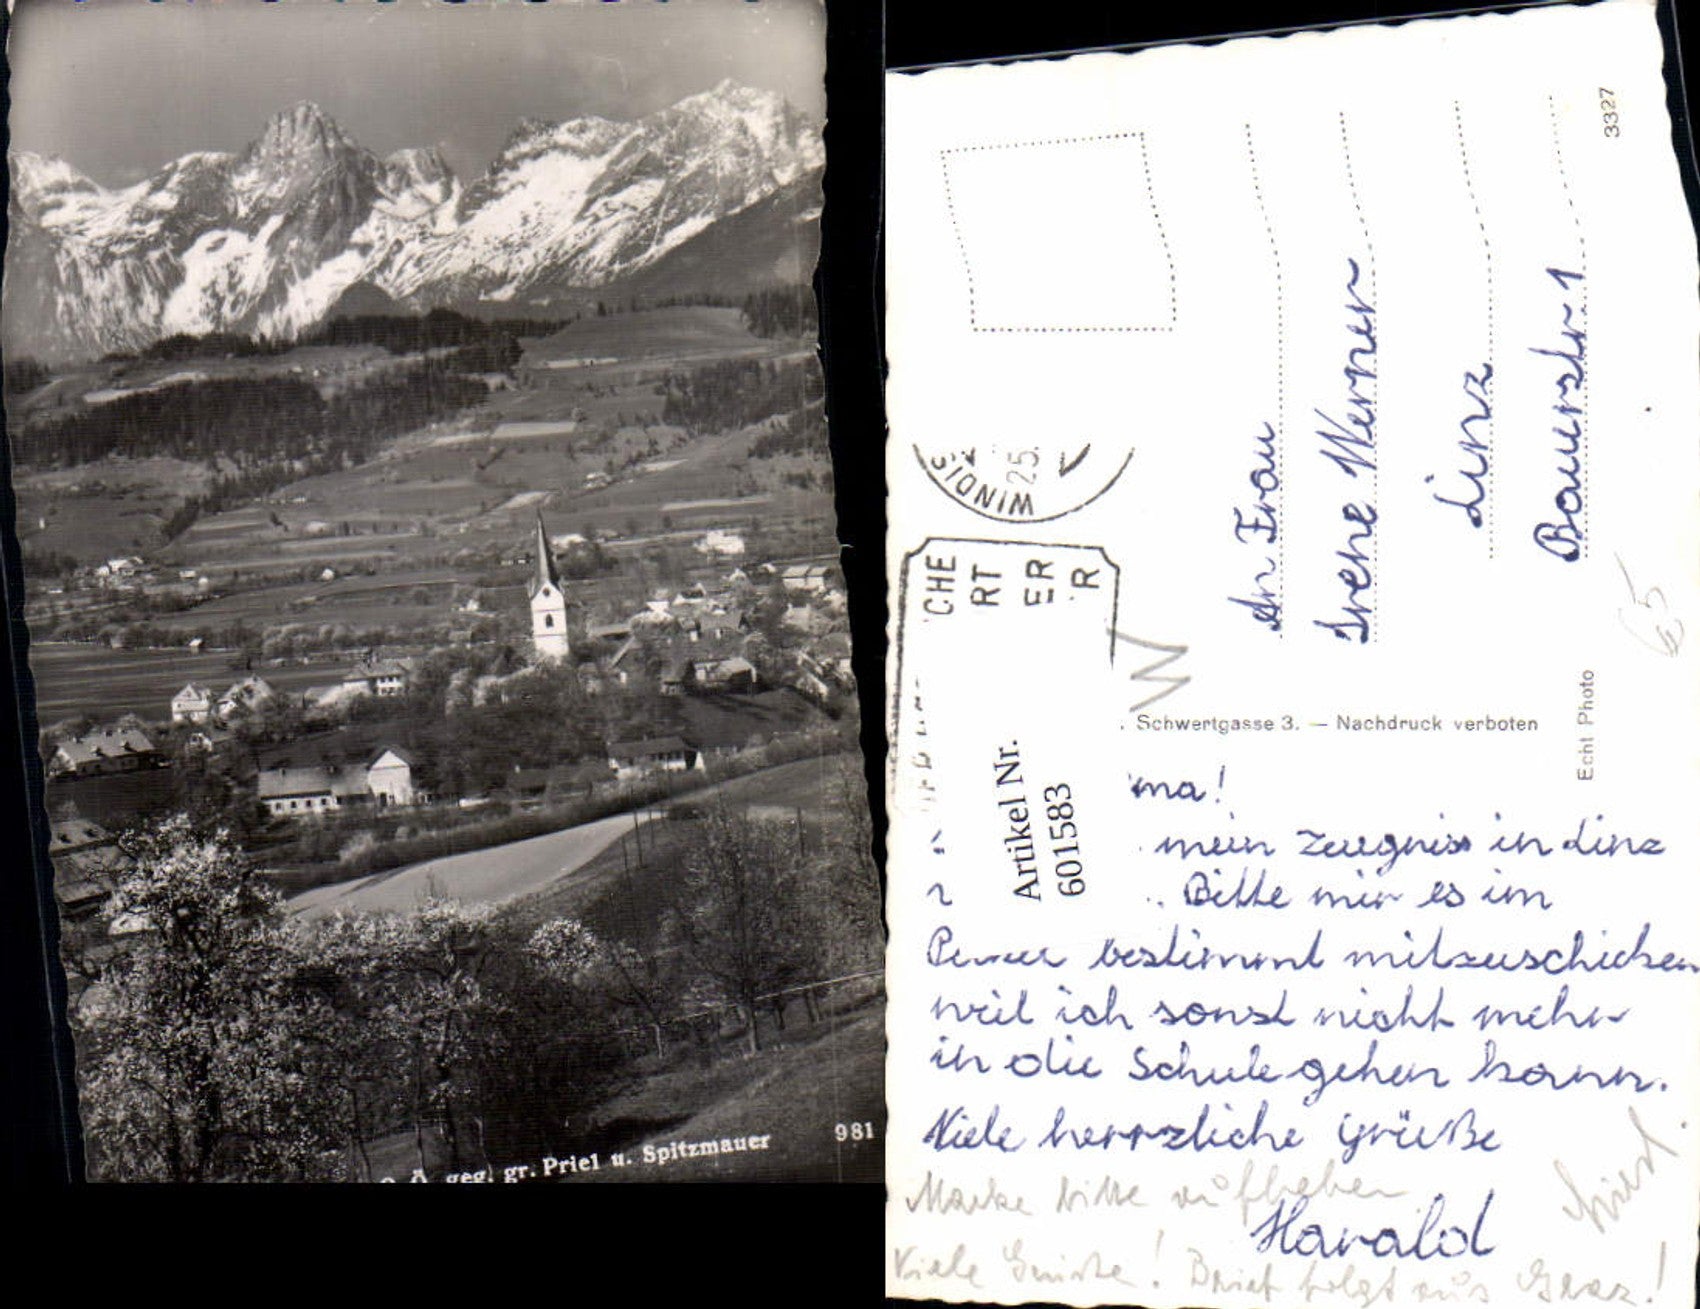 geg. gr. Priel u. Spitzmauer
981
3327
WINDIS
25.
CHE
RT
ER
R
An Frau
Irene Werner
Linz
Bauerstr. 1
65
W
Schwertgasse 3. — Nachdruck verboten
Echt Photo
Artikel Nr.
601583
ma!
mein Zeugniss in Linz
Bitte mir es im
bestimmt mitzuschicken
weil ich sonst nicht mehr
in die Schule gehen kann.
Viele herrzliche Grüße
Marke bitte aufheben
Harald
Viele Grüße! Brief folgt aus Graz!